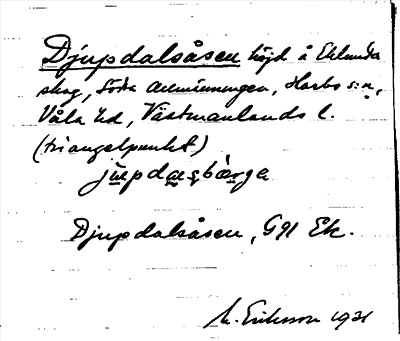 Djupdalsåsen höjd å Eklunda
skog, Södra allmänningen, Harbo s:n,
Våla hd, Västmanlands l.
(triangelpunkt)
Djupdalsåsen, G91 Ek.
M. Eriksson 1931